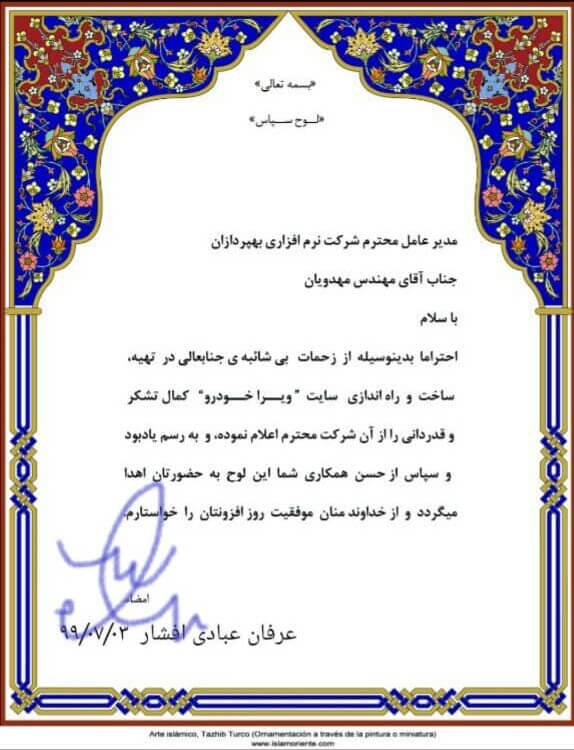 «بسمه تعالی»
«لـوح سـپاس»
مدیر عامل محترم شرکت نرم افزاری بهپردازان
جناب آقای مهندس مهدویان
با سلام
احتراما بدینوسیله از زحمات بی شائبه ی جنابعالی در تهیه،
ساخت و راه اندازی سایت "ویـرا خـودرو" کمال تشکر
و قدردانی را از آن شرکت محترم اعلام نموده، و به رسم یادبود
و سپاس از حسن همکاری شما این لوح به حضورتان اهدا
میگردد و از خداوند منان موفقیت روز افزونتان را خواستارم.
امضا:
عرفان عبادی افشار ۹۹/۰۷/۰۳
Arte islámico, Tazhib Turco (Ornamentación a través de la pintura o miniatura)
www.islamoriente.com